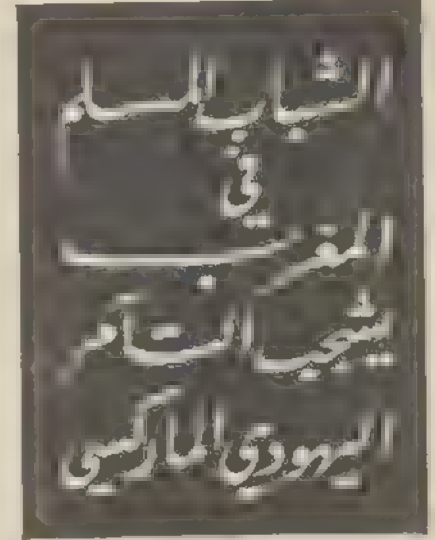 الشباب المسلم
في
المغرب
يشجب التآمر
اليهودي الماركسي